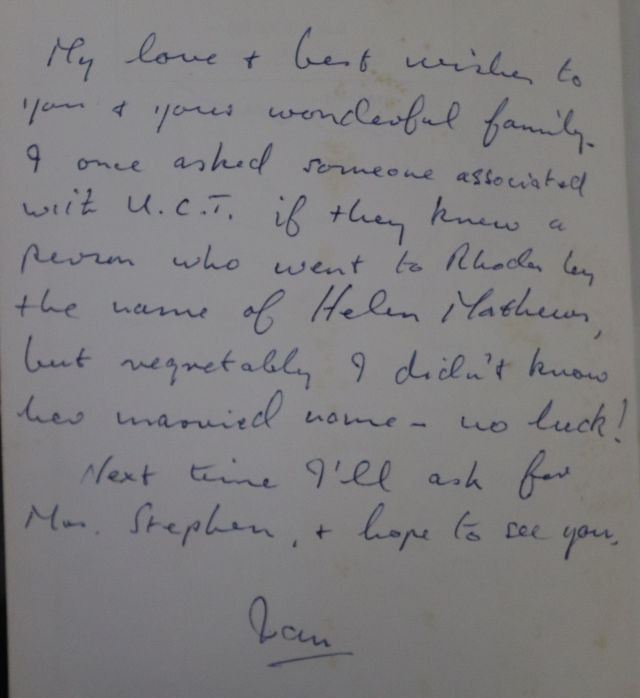 My love + best wishes to
you + your wonderful family.
I once asked someone associated
with U.C.T. if they knew a
person who went to Rhodes by
the name of Helen Mathews,
but regretably I didn't know
her married name - no luck!
Next time I'll ask for
Mrs. Stephen, + hope to see you.
Ian